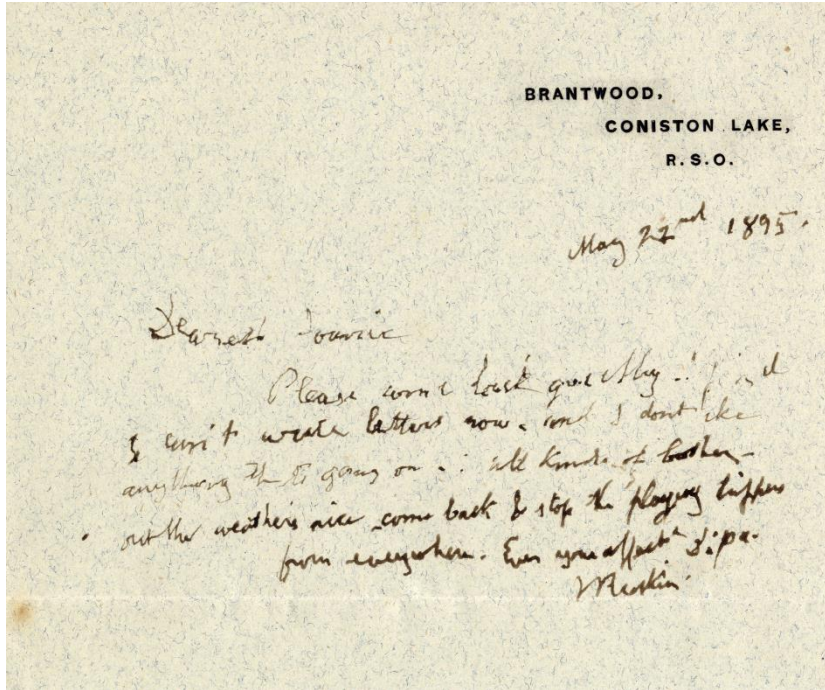 BRANTWOOD,
CONISTON LAKE,
R.S.O.
May 22nd 1895.
Dearest Joanie
Please come back quickly! find
I can't write letters now. and I dont like
anything that's going on all kinds of bother
but the weathers nice come back & stop the trippers
from everywhere. Ever your affecte Di pa.
JRuskin.